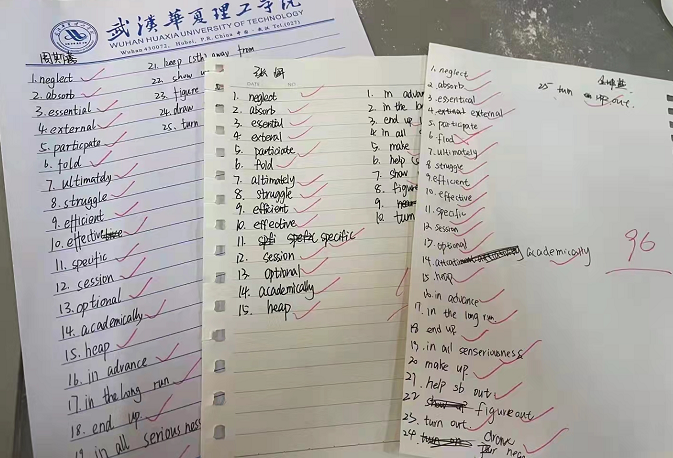 武漢華夏理工学院
WUHAN HUAXIA UNIVERSITY OF TECHNOLOGY
Wuhan 430072, Hubei, P.R. China
1. neglect
2. absorb
3. essential
4. external
5. particpate
6. fold
7. ultimately
8. struggle
9. efficient
10. effective
11. specific
12. session
13. optional
14. academically
15. heap
16. in advance
17. in the long run
18. end up
19. in all seriousness
21. keep (sth) away from
22. show
23. figure
24. draw
25. turn
DATE NO
1. neglect
2. absorb
3. essential
4. exteral
5. particiate
6. fold
7. altimately
8. struggle
9. efficient
10. effective
11. specific
12. session
13. optional
14. academically
15. heap
1. in advan
2. in the lo
3. end up
4. in all
5. make
6. help (s
7. show
8. figur
9.
10. turn
1. neglect
2. absorb
3. essential
4. external
5. particpate
6. flod
7. ultimately
8. struggle
9. efficient
10. effective
11. specific
12. session
13. optional
14. academically
15. heap
16. in advance
17. in the long run
18 end up
19. in all senseriousness
20 make up
21. help sb out
22 figure out
23. turn out
24.
25. turn out.
96